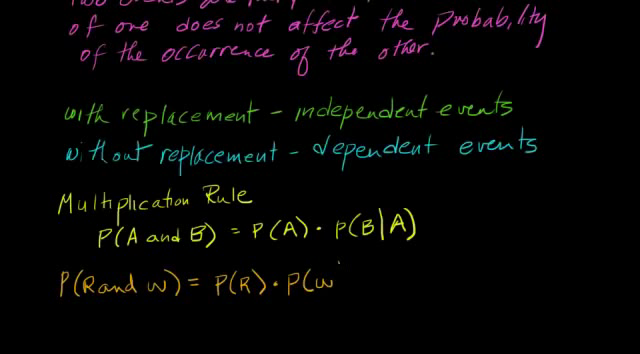 of one does not affect the probability
of the occurrence of the other.
with replacement - independent events
without replacement - dependent events
Multiplication Rule
P(A and B) = P(A) • P(B|A)
P(R and W) = P(R) • P(W